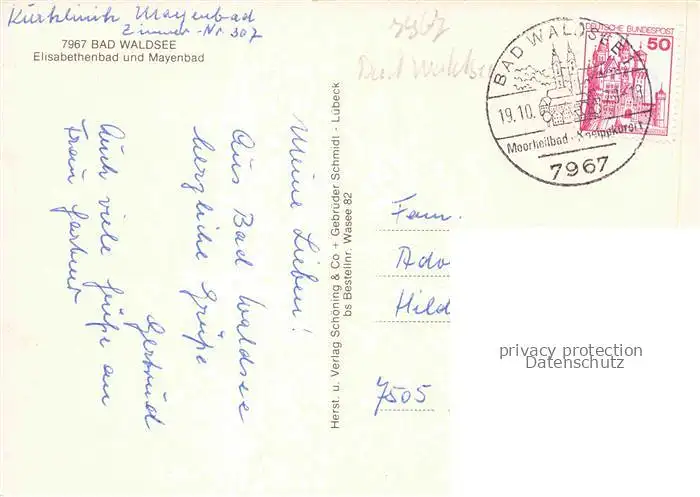 Kurklinik Mayenbad
Zimmer-Nr 307
7967 BAD WALDSEE
Elisabethenbad und Mayenbad
Meine Lieben!
Aus Bad Waldsee
herzliche Grüße
Gertrud
Auch viele Grüße an
Frau
Herst. u. Verlag Schöning & Co + Gebrüder Schmidt - Lübeck
bs Bestellnr. Wasee 82
7967
BAD WALDSEE
19.10.
Moorheilbad · Kneippkurort
7967
DEUTSCHE BUNDESPOST
50
Fam.
Ado
Hild
7505
privacy protection
Datenschutz